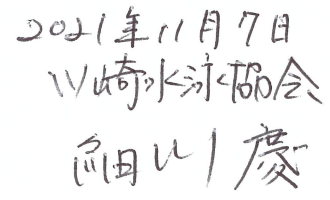 2021年11月7日
川崎水泳協会
細川慶